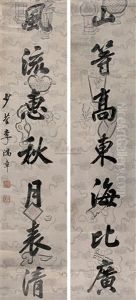 山等高東海比廣
風流惠秋月表清
少荃李鴻章